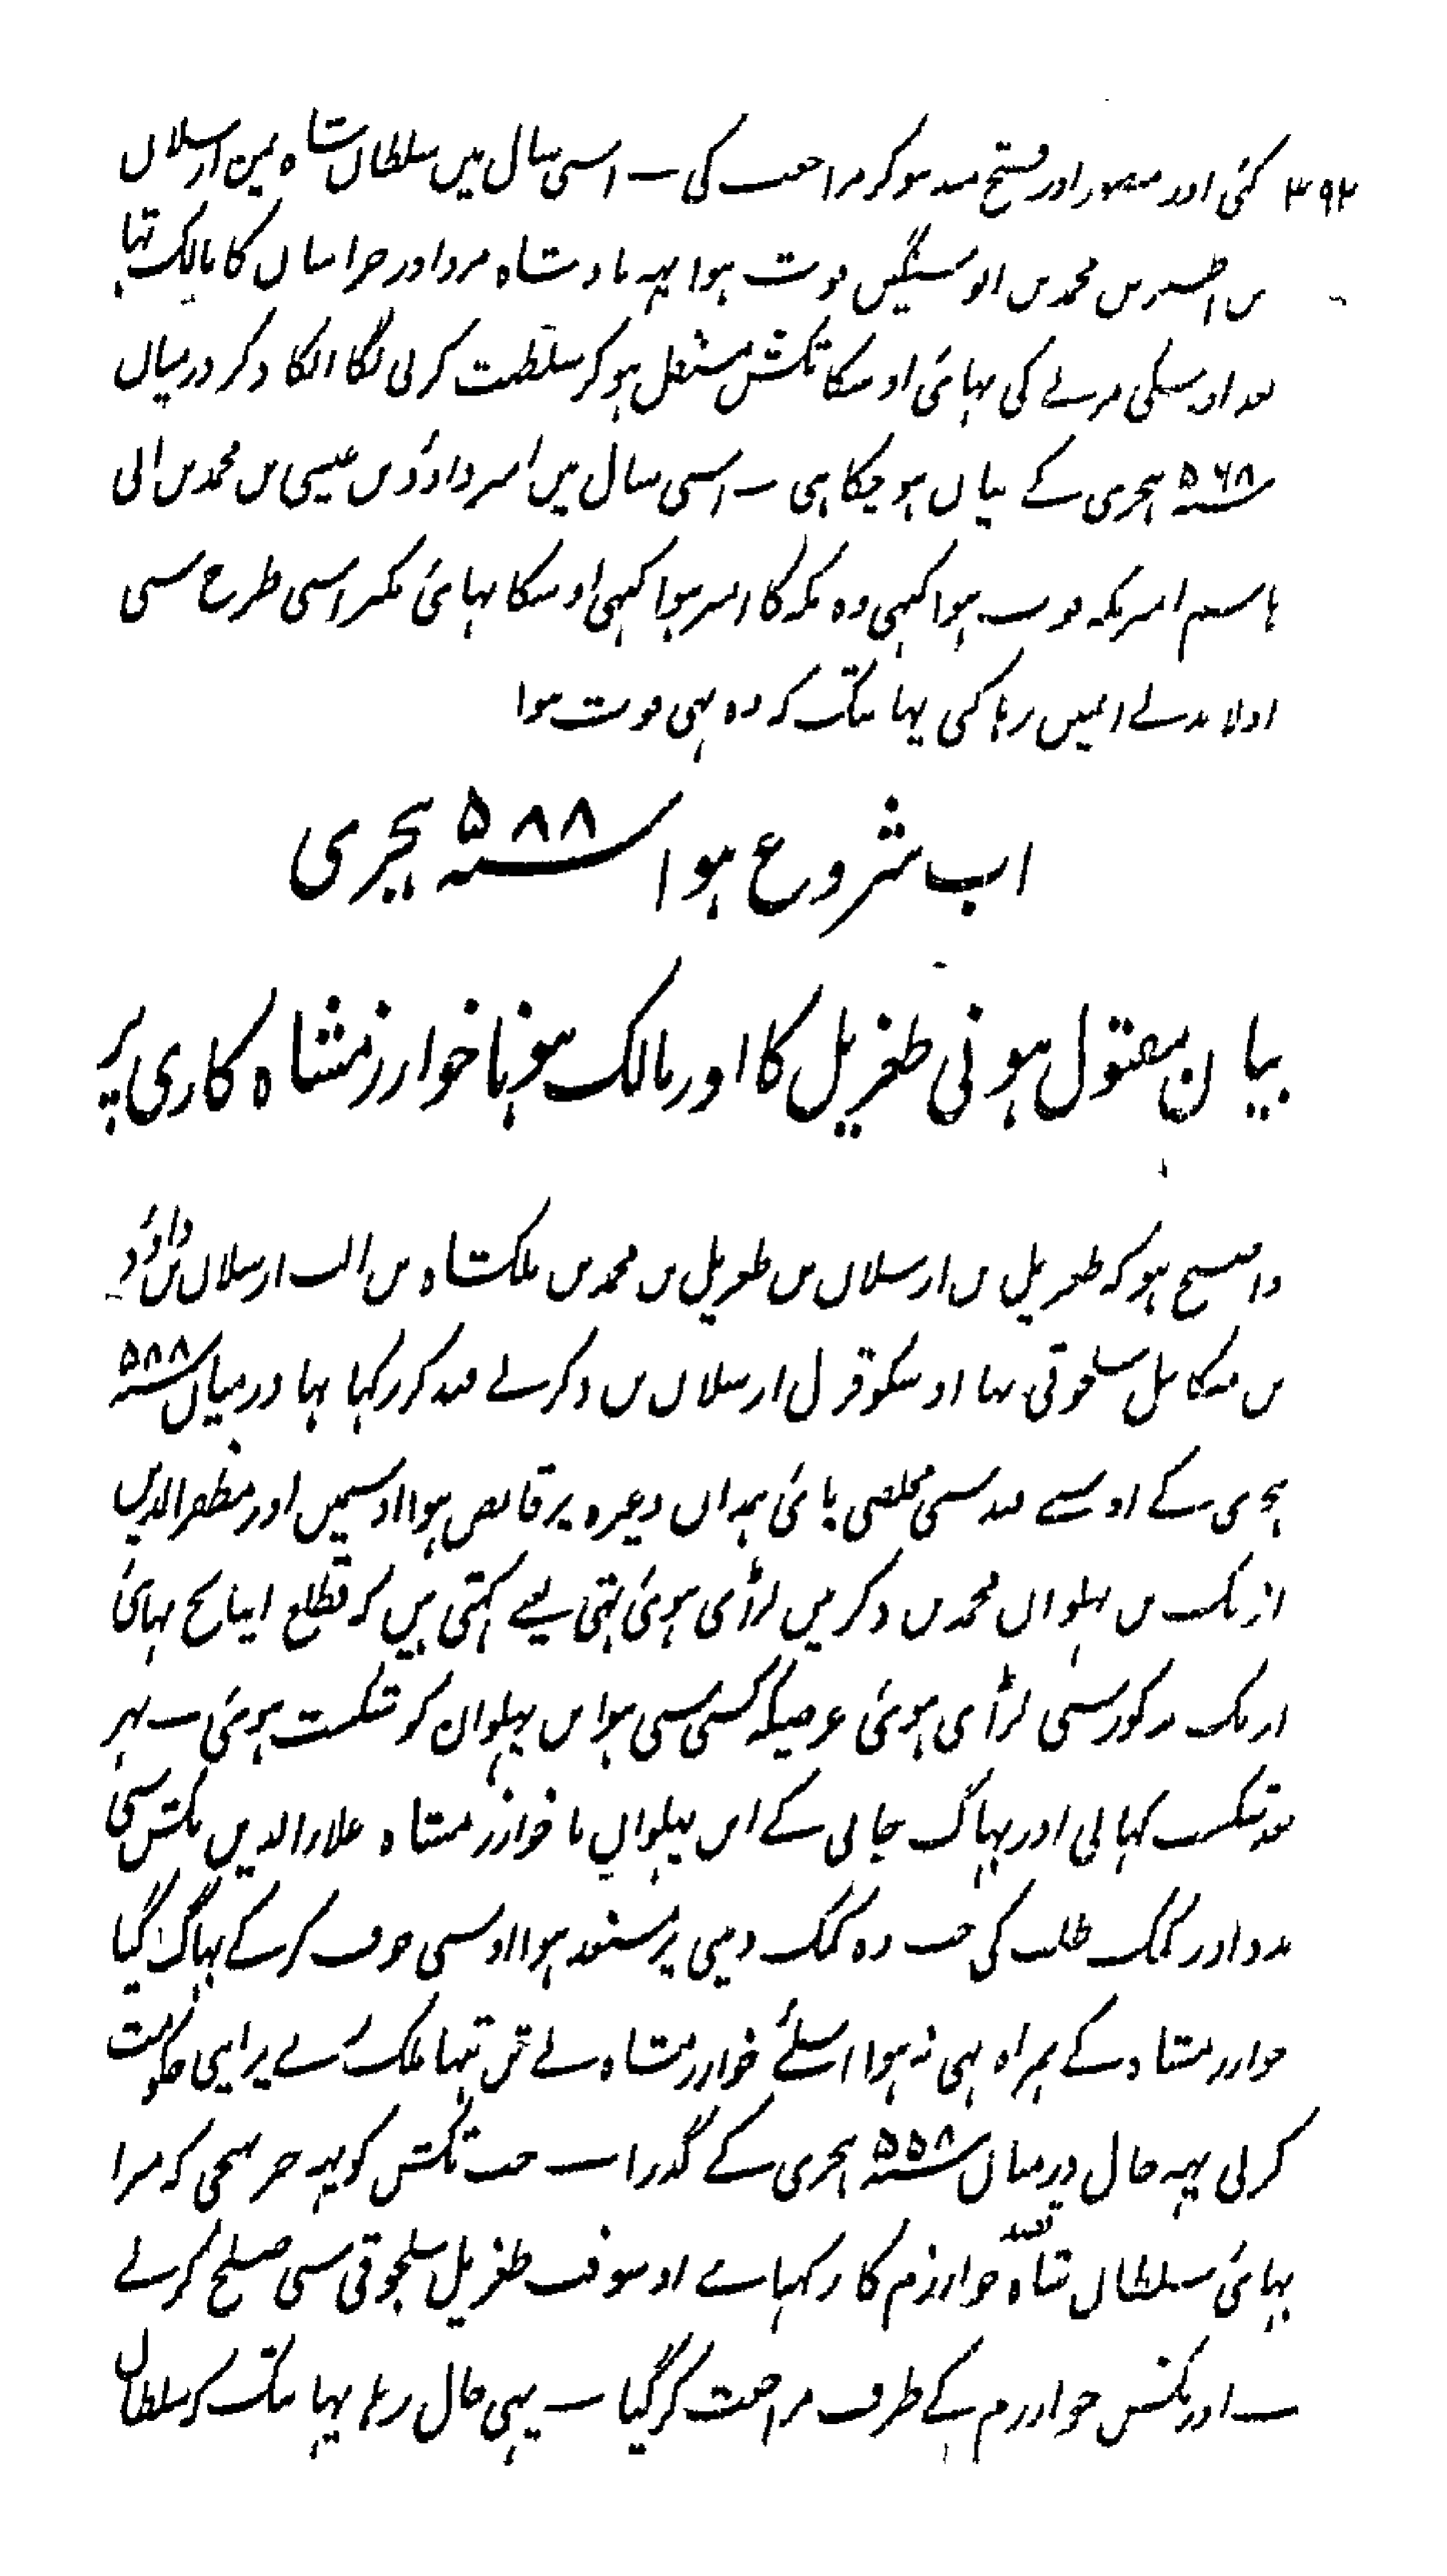 ۳۹۲ کئی اور منصور اور فتح مند ہوکر مراجعت کی ۔ اسی سال میں سلطان شاہ بن ارسلان
بن اطسز بن محمد بن انوشتگین فوت ہوا یہہ بادشاہ مرو اور خراسان کا مالک تہا
بعد اوسکی مرنے کی بہائی اوسکا تکش مستقل ہوکر سلطنت کرنی لگا انکا ذکر درمیان
سنہ ۵۶۸ ہجری کے بیان ہو چکا ہی ۔ اسی سال میں امیر داوٗد بن عیسی بن محمد بن ابی
ہاشم امیر مکہ فوت ہوا کبہی وہ مکہ کا امیر ہوا کبہی اوسکا بہائی مکثر اسی طرح سی
ادلا بدلے انمیں رہا کی یہانتک کہ وہ بہی فوت ہوا
اب شروع ہوا سنہ ۵۸۸ ہجری
بیان مقتول ہونی طغریل کا اور مالک ہونا خوارزمشاہ کا ری پر
واضح ہو کہ طغریل بن ارسلان بن طغریل بن محمد بن ملکشاہ بن الب ارسلان بن داوٗد
بن میکائیل سلجوقی تہا اوسکو قزل ارسلان بن دکز نے قید کر رکہا تہا درمیان سنہ ۵۸۸
ہجری کے اوسنے قید سی مخلصی پائی ہمدان وغیرہ پر قابض ہوا اوسمیں اور مظفر الدین
ازبک بن پہلوان محمد بن دکز میں لڑائی ہوئی تہی بعضے کہتی ہیں کہ قطلع اینانج بہائی
ازبک مذکور سی لڑائی ہوئی غرضیکہ کسی سی ہو ابن پہلوان کو شکست ہوئی ۔ پہر
بعد شکست کہانی اور بہاگ جانی کے ابن پہلوان نا خوارزمشاہ علاء الدین تکش سی
مدد اور کمک طلب کی جب وہ کمک دینی پر مستعد ہوا اوسسی خوف کر کے بہاگ گیا
خوارزمشاہ کے ہمراہ بہی نہ ہوا اسلئے خوارزمشاہ نے تن تنہا ملک رے پر اپنی حکومت
کر لی یہہ حال درمیان سنہ ۵۵۸ ہجری کے گذرا ۔ جب تکش کو یہہ خبر پہنچی کہ میرا
بہائی سلطان شاہ قصد خوارزم کا رکہتا ہے اوسوقت طغریل سلجوقی سی صلح کر لے
۔ اور تکش خوارزم کے طرف مراجعت کر گیا ۔ یہی حال رہا یہانتک کہ سلطان